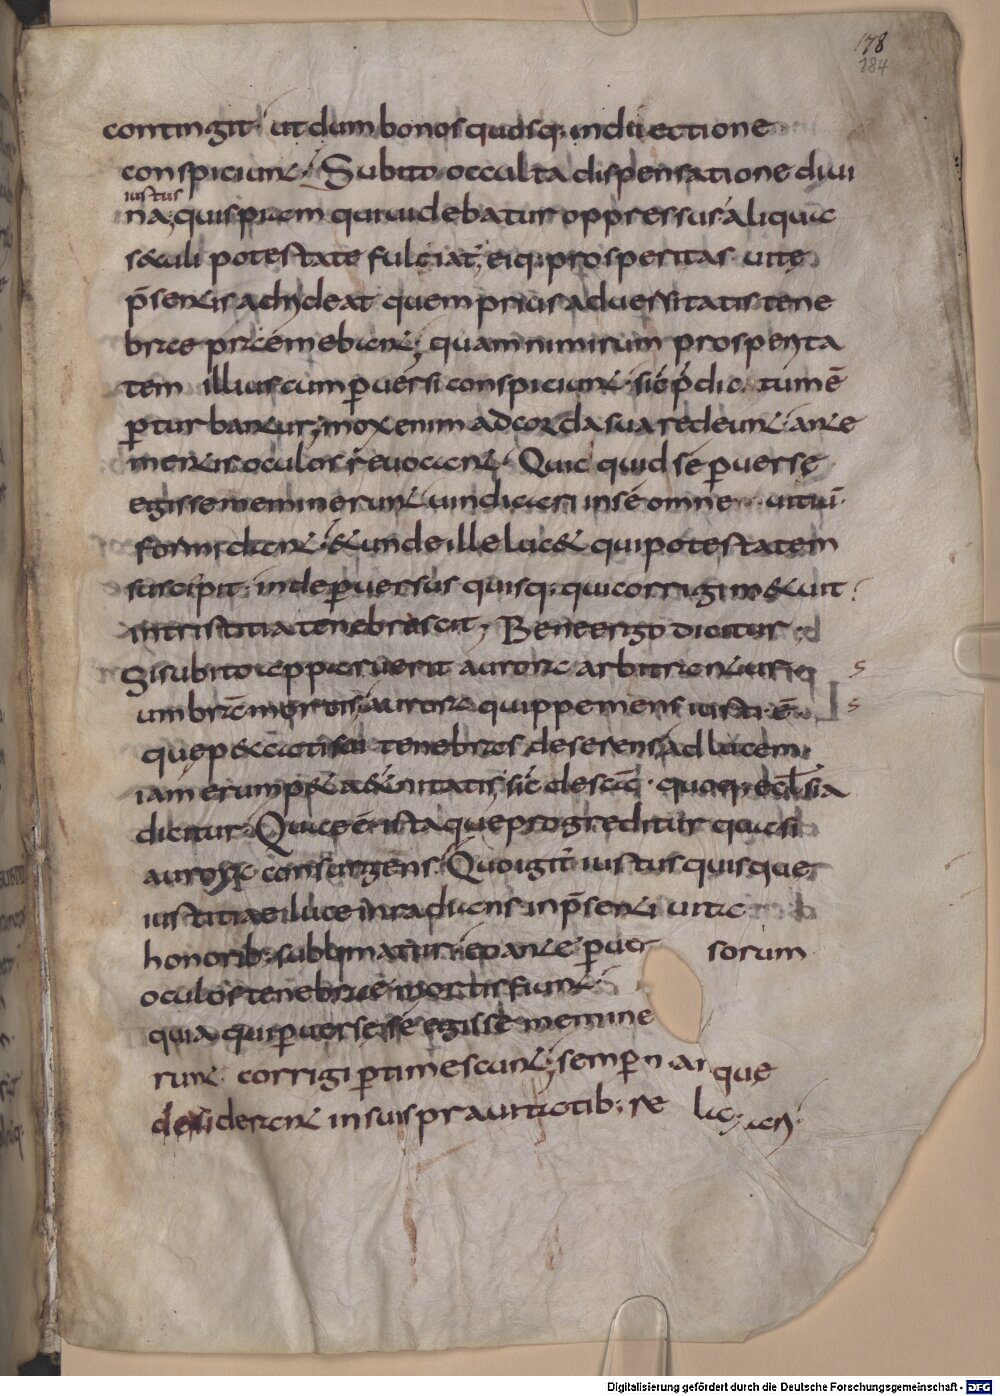 178
184
contingit. ut dum bonos quosq; in diiectione
conspiciunt. Subito occulta dispensatione diui
iustus
na, quispiam qui uidebatur oppressus aliqua
sæculi potestate fulciat, eiq; prosperitas uitę
p̄sentis adrideat quem prius aduersitatis tene
brae praemebant; quam nimirum prosperita
tem illius cum ꝑuersi conspiciunt. sic p̄dic tum ē
ꝑturbantur; mox enim ad corda sua redeunt. ante
mentis oculos reuocant. Quic quid se ꝑuersę
egisse meminerunt uindicari in se omne uitiū
formidant. & unde ille lucet qui potestatem
suscipit. inde ꝑuersus quisq; qui corrigi metuit
in tristitia tenebrescit; Bene ergo dicitur
Si subito apparuerit aurora arbitrantur
umbrā mortis; aurora quippe mens iusti ē.
que peccati sui tenebras deserens ad lucem
iam erumpit aeternitatis, sic de scā quoq; ecclesia
dicitur. Quae ē ista que progreditur quasi
aurora consurgens. Quo igit iustus quisque
iustitiae luce inradians in p̄senti uita
honorib; sublimatur. eo ante ꝑuer sorum
oculos tenebrae mortis fiunt.
quia qui ꝑuerse se egisse memine
runt corrigi ꝑtimescunt; semper nam que
desiderant in suis prauitatib; se laxari